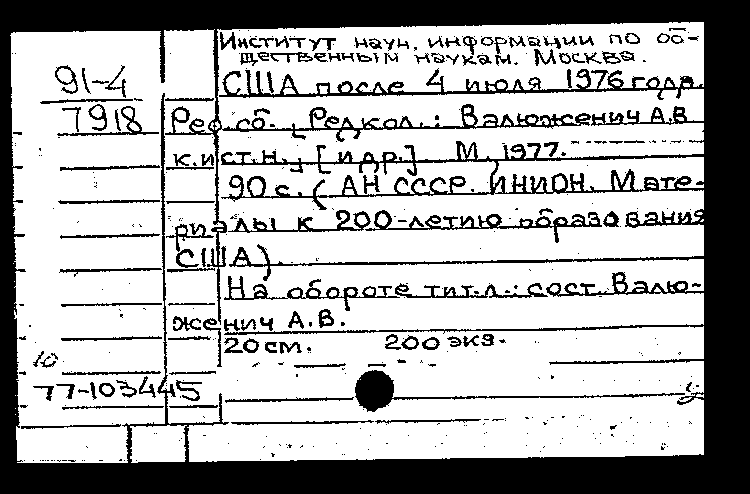 Институт науч. информации по об-
щественным наукам. Москва.
91-4
США после 4 июля 1976 года.
7918
Реф. сб. [Редкол.: Валюженич А.В
к.ист.н.] [и др.] М., 1977.
90 с. (АН СССР. ИНИОН. Мате-
риалы к 200-летию образования
США).
На обороте тит.л.: сост. Валю-
женич А.В.
20 см. 200 экз.
10
77-103445